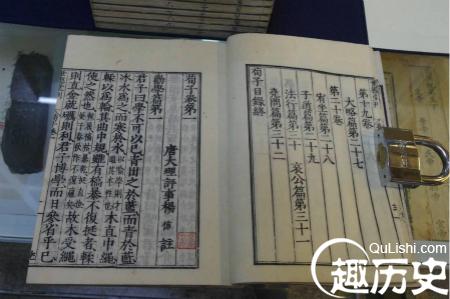 第十九卷
大略篇第二十七
第二十卷
宥坐篇第二十八
子道篇第二十九
法行篇第三十 哀公篇第三十一
堯問篇第三十二
荀子目錄終
荀子卷第一
唐大理評事楊倞註
勸學篇第一
君子曰學不可以已青出之於藍而青於藍
冰水為之而寒於水 木直中繩
輮以為輪其曲中規雖有槁暴不復挺者輮
使之然也 故木受繩
則直金就礪則利君子博學而日參省乎己
QuLiShi.com
趣历史